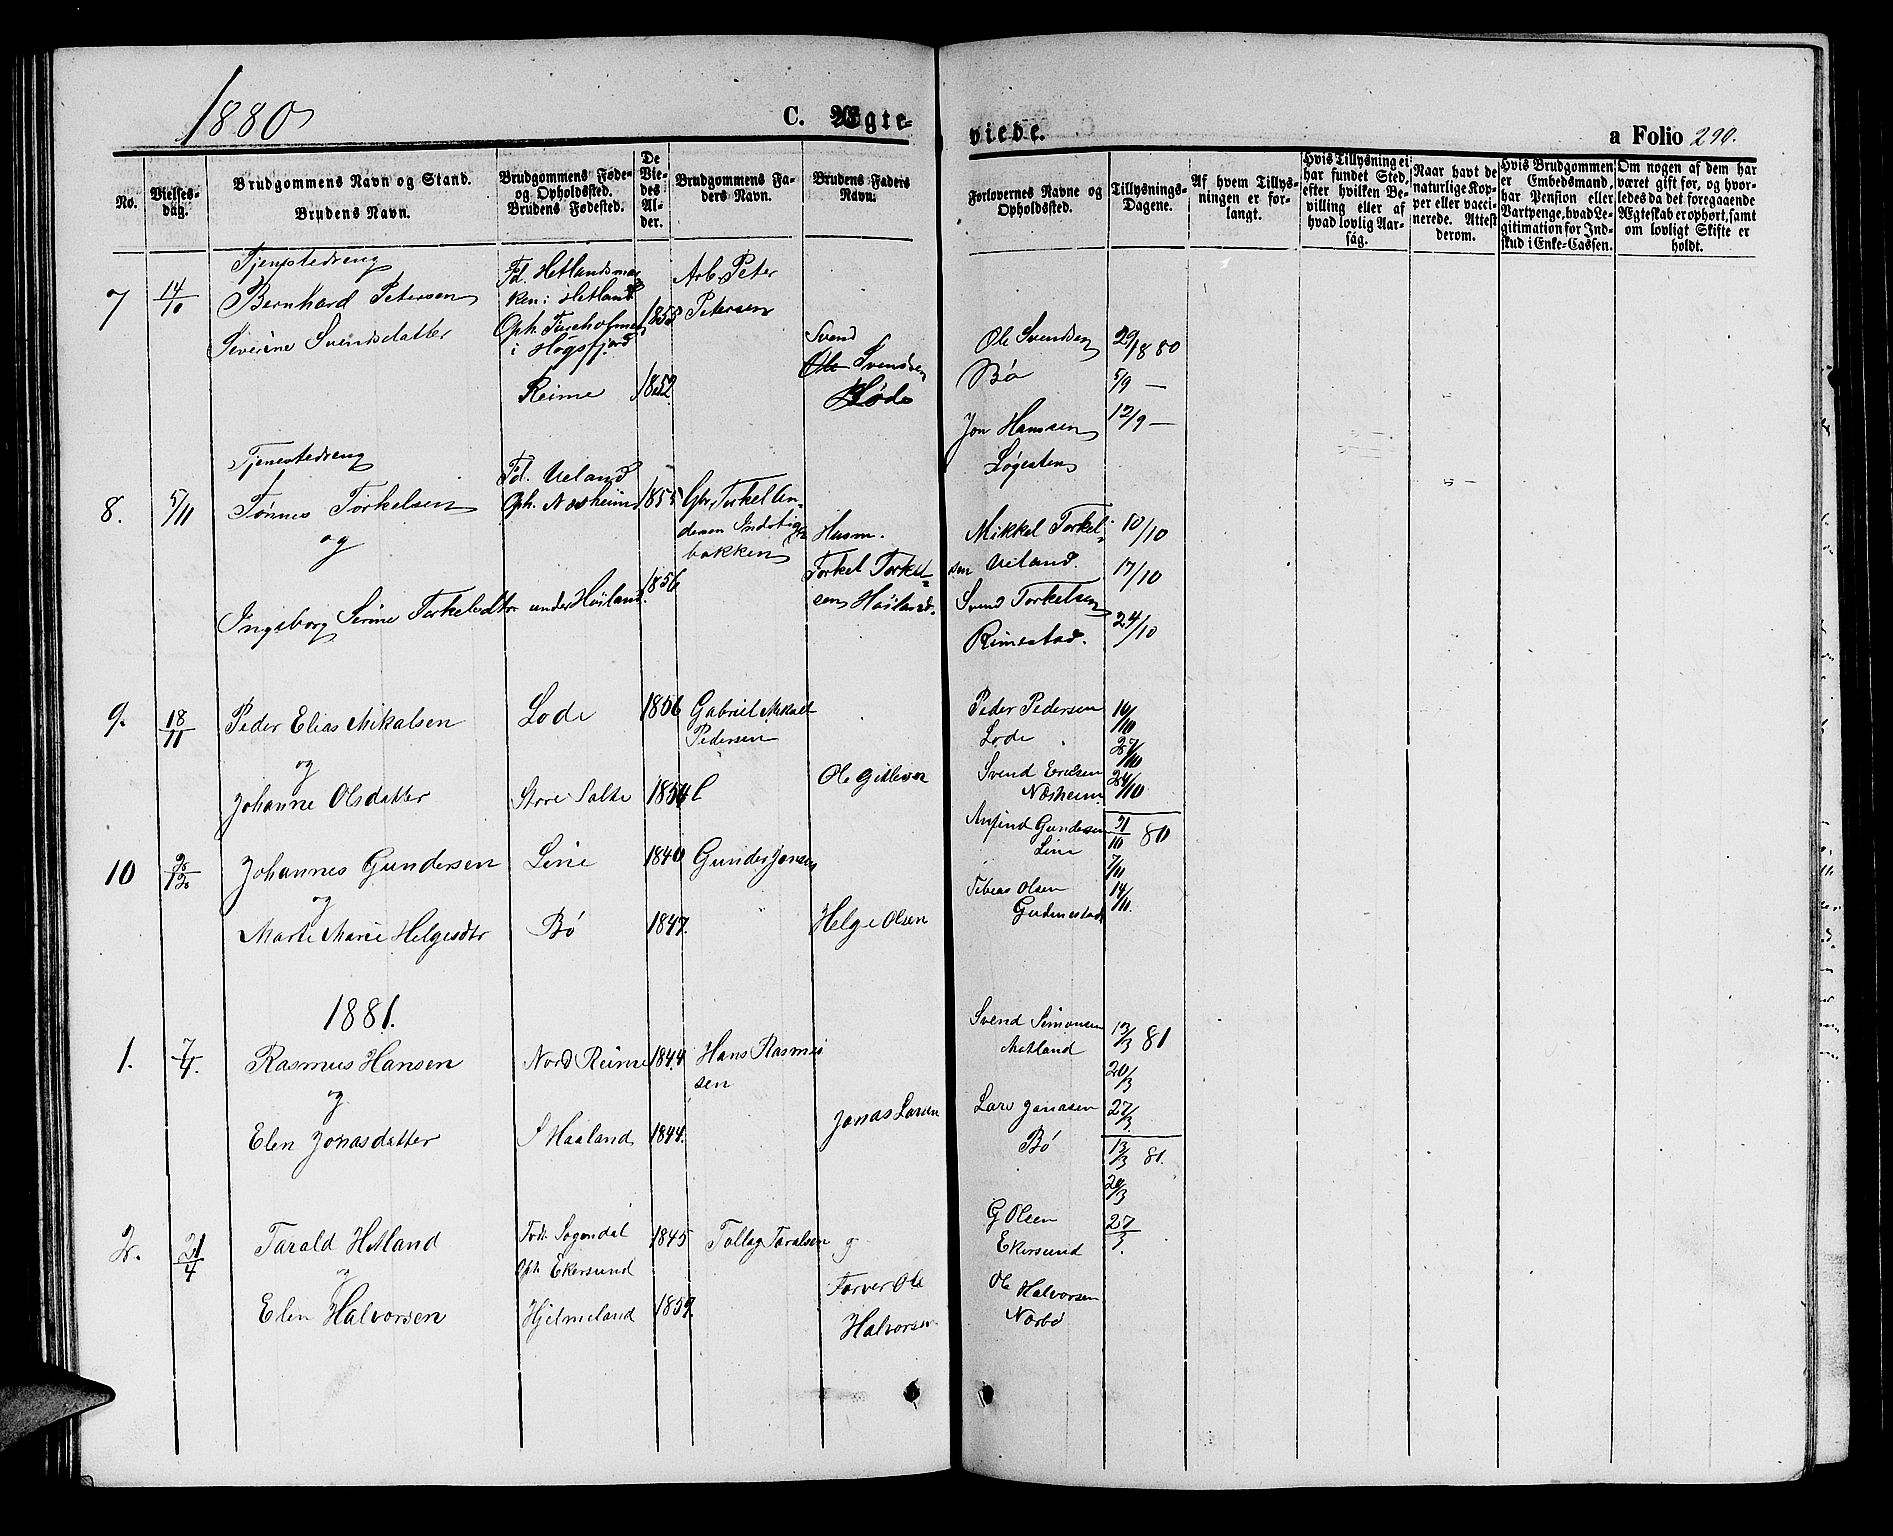 1880
C. Ægte-
viede.
a Folio 290.
No.
Vielses-
dag.
Brudgommens Navn og Stand.
Brudens Navn.
Brudgommens Føde-
og Opholdssted.
Brudens Fødested.
De
Vie-
des
Al-
der.
Brudgommens Fa-
ders Navn.
Brudens Faders
Navn.
Forlovernes Navne og
Opholdssted.
Tillysnings-
Dagene.
Af hvem Tillys-
ningen er for-
langt.
Hvis Tillysning ei
har fundet Sted,
efter hvilken Be-
villing eller af
hvad lovlig Aar-
sag.
Naar havt de
naturlige Kop-
per eller vacci-
nerede. Attest
derom.
Hvis Brudgommen
er Embedsmand,
har Pension eller
Vartpenge, hvad Le-
gitimation for Ind-
skud i Enke-Cassen.
Om nogen af dem har
været gift før, og hvor-
ledes da det foregaaende
Ægteskab er ophørt, samt
om lovligt Skifte er
holdt.
7
14/10
Tjenestedreng
Bernhard Petersen
Severine Svendsdatter
Fd. Hetlandsmar
ken i Hetland
Oph.
i Høgsfjord
Reime
1855
1852.
Arb. Peter
Petersen
Svend
Ole Svendsen
Høde
Ole Svendsen
Bø
Jon Hansen
Løgesten
29/8 80
5/9 —
12/9 —
8.
5/11
Tjenestedreng
Tønnes Torkelsen
og
Ingeborg Serine Torkelsdtr
Fd. Ueland
Oph. Næsheim
under Høiland.
1855
1856
Gbr. Torkel An-
bakken
Husm.
Torkel Torkel-
sen Høiland.
Mikkel Torkel-
sen Ueland.
Svend Torkelsen
Rimestad.
10/10
17/10
24/10
9.
18/11
Peder Elias Mikalsen
og
Johanne Olsdatter
Lode
Store Salte
1856
1854
Gabriel Mikael
Pedersen
Ole Gitlesen
Peder Pedersen
Lode
Svend Erelsen
Næsheim
24/10
10
Johannes Gundersen
og
Marte Marie Helgesdtr
Line
Bø
1840
1847.
Gunder Jonsen
Helge Olsen
Anfind Gundersen
Line
Tobias Olsen
Gudmestad
31/10 80
7/11
14/11.
1881.
1.
7/4.
Rasmus Hansen
og
Elen Jonasdatter
Nord Reime
S Haaland
1844.
1844.
Hans Rasmu
sen
Jonas Larsen
Svend Simonsen
Motland
Lars Jonasen
Bø
13/3 81
20/3
27/3.
2.
21/4
Tarald Hetland
og
Elen Halvorsen
Fød. Sogendal
Oph Ekersund
Hjelmeland
1845
1859.
Tollag Taralsen
g
Farver Ole
Halvorsen
G Olsen
Ekersund
Ole Halvorsen
Narbø
13/3 81.
20/3
27/3.